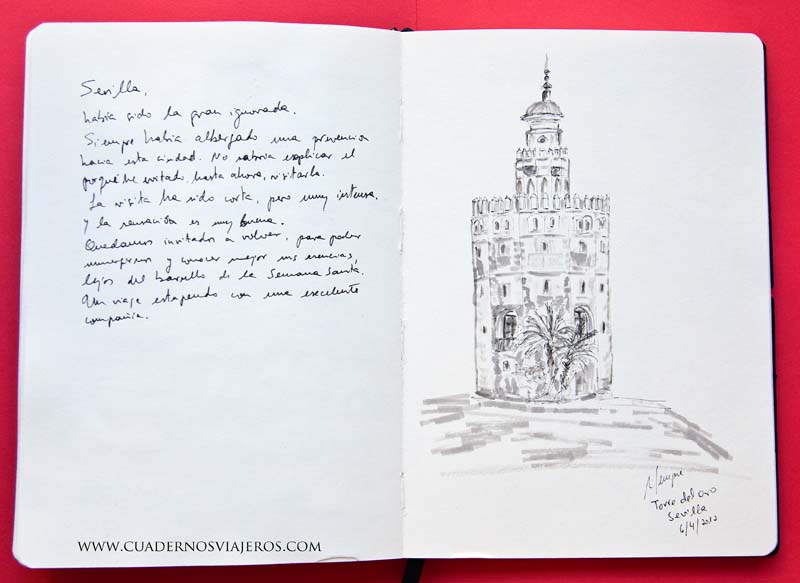 Sevilla,
había sido la gran ignorada.
Siempre había albergado una prevención
hacia esta ciudad. No sabría explicar el
porqué he evitado, hasta ahora, visitarla.
La visita ha sido corta, pero muy intensa.
y la sensación es muy buena.
Quedamos invitados a volver, para poder
sumergirnos y conocer mejor sus esencias,
lejos del barullo de la Semana Santa.
Un viaje estupendo con una excelente
compañía.
WWW.CUADERNOSVIAJEROS.COM
Torre del oro
Sevilla
6/4/2012